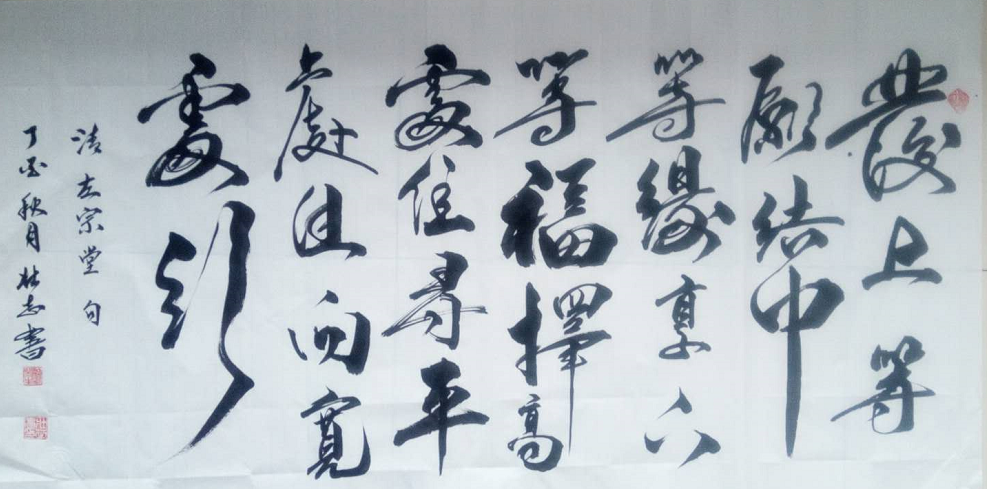 發上等
願結中
等緣享下
等福擇高
處住尋平
處住向寬
處行
清左宗堂句
丁酉秋月林志書